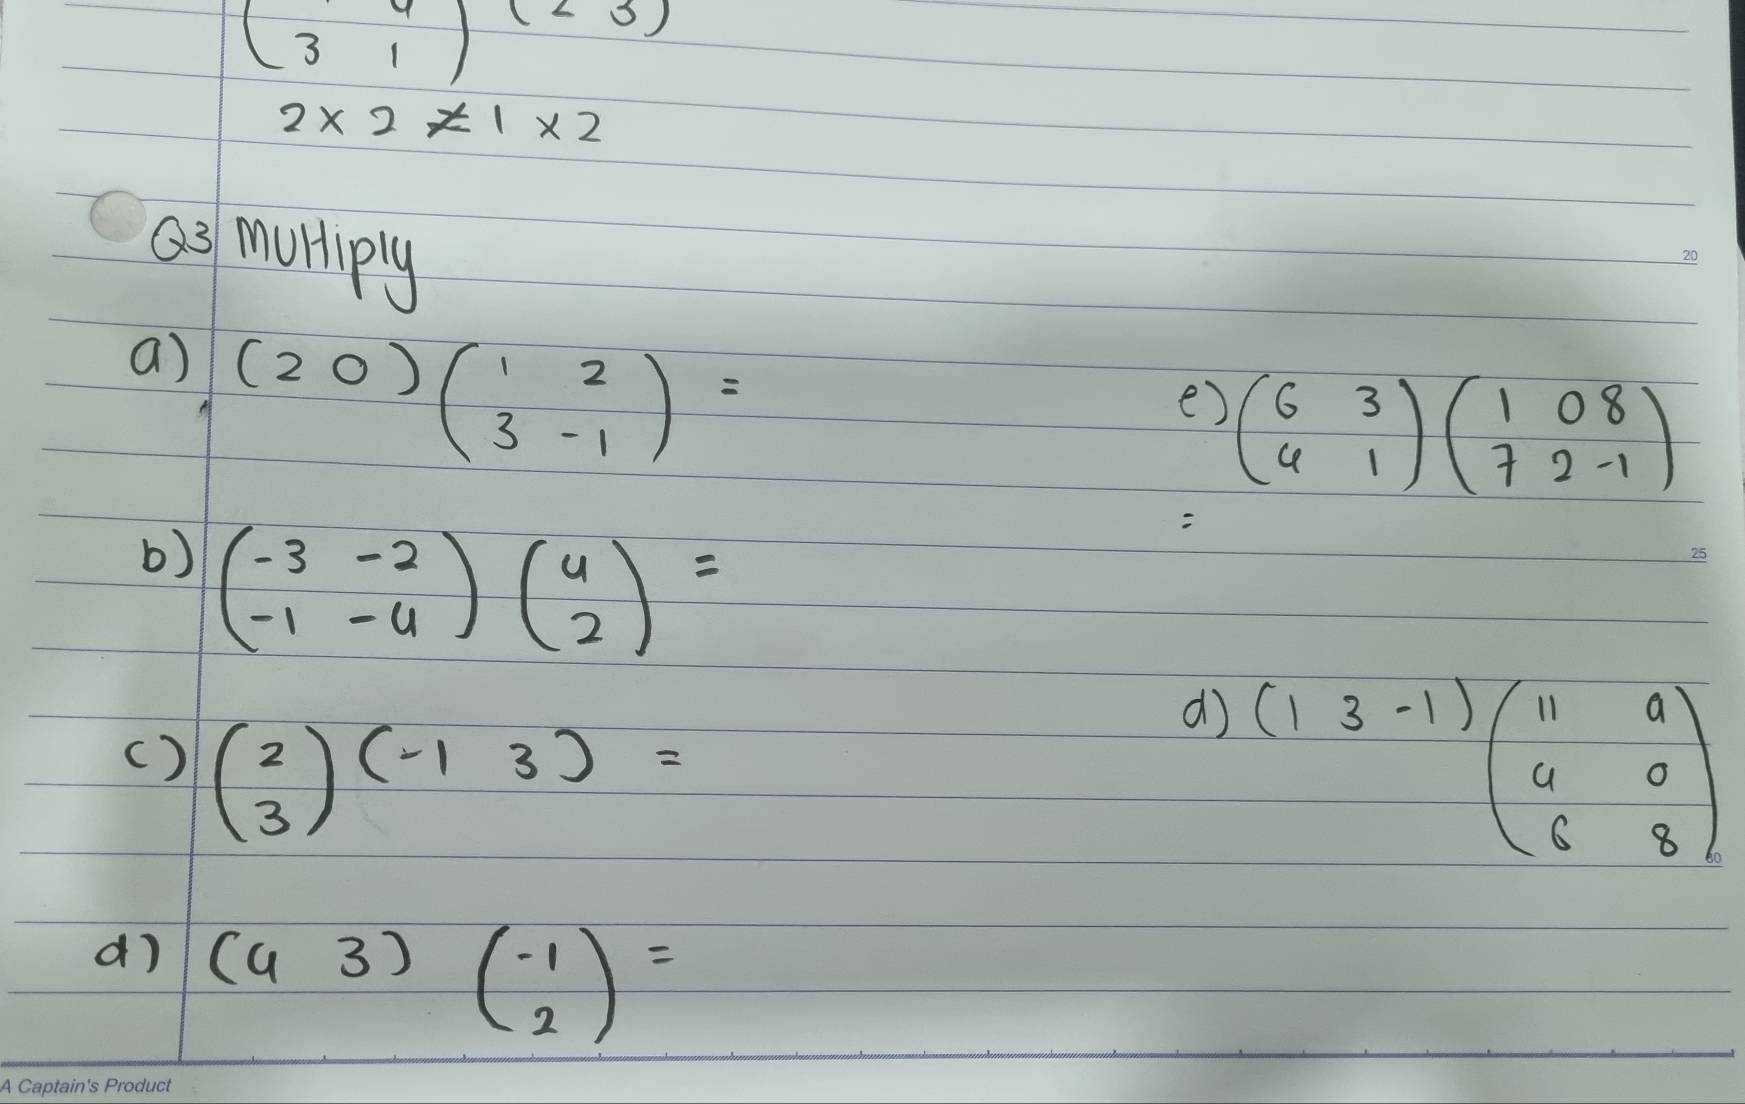 (2 3)
3 1
2 x 2 ≠ 1 x 2
Q3 Multiply
20
a) (2 0) (1 2
3 -1) =
e) (6 3
4 1) (1 0 8
7 2 -1)
=
25
b) (-3 -2
-1 -4) (4
2) =
c) (2
3) (-1 3) =
d) (1 3 -1) (11 9
4 0
6 8)
30
d) (4 3) (-1
2) =
A Captain's Product